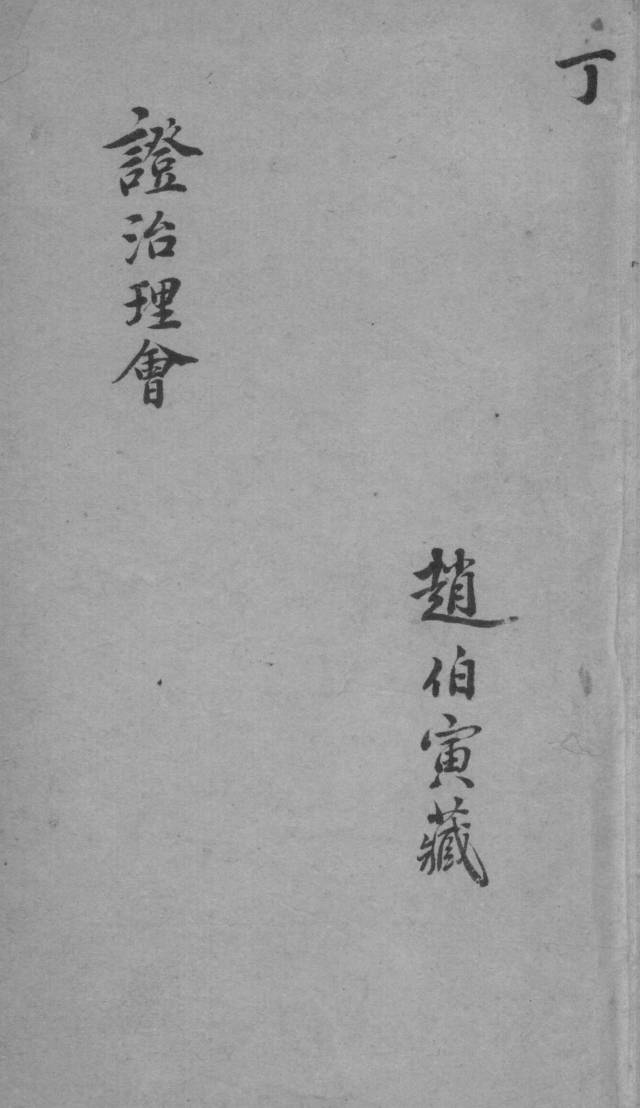 丁
趙伯寅藏
證治理會